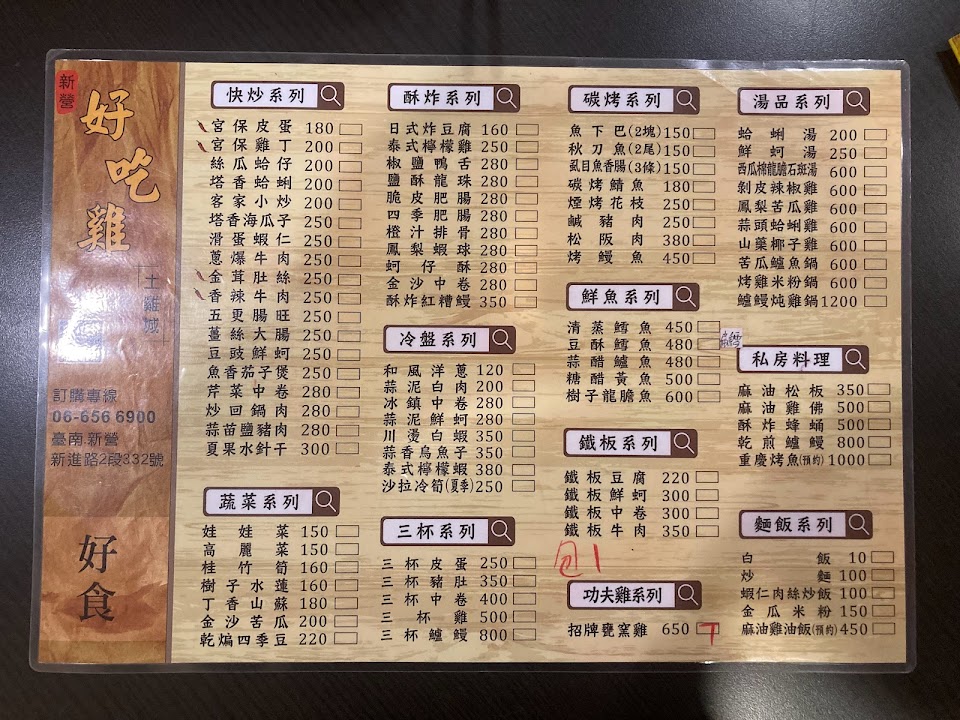 新營
好吃雞
土雞城
訂購專線
06-656 6900
臺南.新營
新進路2段332號
好食
快炒系列
宮保皮蛋 180
宮保雞丁 200
絲瓜蛤仔 200
塔香蛤蜊 200
客家小炒 200
塔香海瓜子 250
滑蛋蝦仁 250
蔥爆牛肉 250
金茸肚絲 250
香辣牛肉 250
五更腸旺 250
薑絲大腸 250
豆豉鮮蚵 250
魚香茄子煲 250
芹菜中卷 280
炒回鍋肉 280
蒜苗鹽豬肉 280
夏果水針干 300
蔬菜系列
娃娃菜 150
高麗菜 150
桂竹筍 160
樹子水蓮 160
丁香山蘇 180
金沙苦瓜 200
乾煸四季豆 220
酥炸系列
日式炸豆腐 160
泰式檸檬雞 250
椒鹽鴨舌 280
鹽酥龍珠 280
脆皮肥腸 280
四季肥腸 280
橙汁排骨 280
鳳梨蝦球 280
蚵仔酥 280
金沙中卷 280
酥炸紅糟鰻 350
冷盤系列
和風洋蔥 120
蒜泥白肉 200
冰鎮中卷 280
蒜泥鮮蚵 280
川燙白蝦 350
蒜香烏魚子 350
泰式檸檬蝦 380
沙拉冷筍(夏季) 250
三杯系列
三杯皮蛋 250
三杯豬肚 350
三杯中卷 400
三杯雞 500
三杯鱸鰻 800
碳烤系列
魚下巴(2塊) 150
秋刀魚(2尾) 150
虱目魚香腸(3條) 150
碳烤鯖魚 180
煙烤花枝 250
鹹豬肉 250
松阪肉 380
烤鰻魚 450
鮮魚系列
清蒸鱈魚 450
豆酥鱈魚 480
蒜醋鱸魚 480
糖醋黃魚 500
樹子龍膽魚 600
鐵板系列
鐵板豆腐 220
鐵板鮮蚵 300
鐵板中卷 300
鐵板牛肉 350
包1
功夫雞系列
招牌甕窯雞 650
湯品系列
蛤蜊湯 200
鮮蚵湯 250
西瓜棉龍膽石斑湯 600
剝皮辣椒雞 600
鳳梨苦瓜雞 600
蒜頭蛤蜊雞 600
山藥椰子雞 600
苦瓜鱸魚鍋 600
烤雞米粉鍋 600
鱸鰻炖雞鍋 1200
私房料理
麻油松板 350
麻油雞佛 500
酥炸蜂蛹 500
乾煎鱸鰻 800
重慶烤魚(預約) 1000
麵飯系列
白飯 10
炒麵 100
蝦仁肉絲炒飯 100
金瓜米粉 150
麻油雞油飯(預約) 450